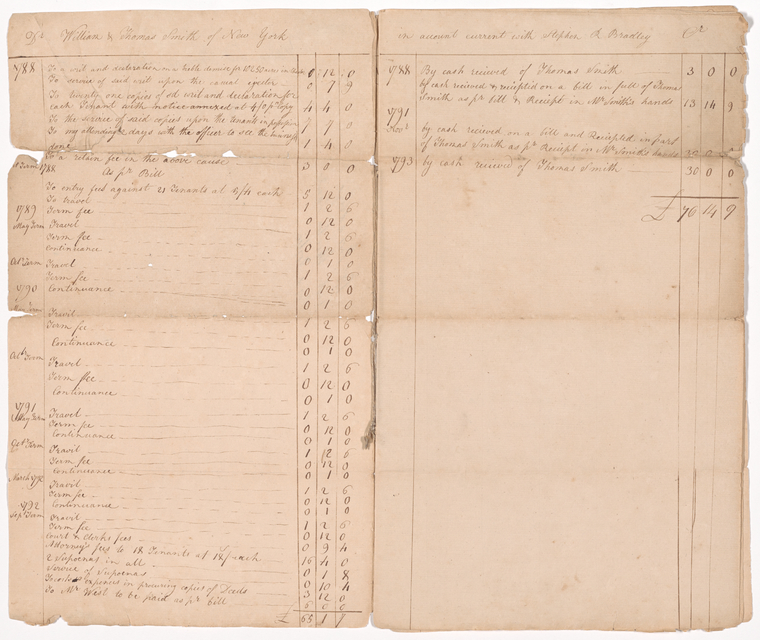 Dr. William & Thomas Smith of New York
1788 To a writ and declaration
To service of said writ upon the casual ejector 0 7 9
To twenty one copies of sd writ and declaration for
each Tenant with notice annexed at 4/0 pr Copy 4 4 0
To the service of said copies upon the tenants 7 7 0
To my attending days with the officer to see the
done 1 4 0
To a retain fee in the above cause 3 0 0
As pr Bill
To entry fees against 21 Tenants at each 5 12 0
To travel 1 2 6
1789 Term fee 0 12 0
May Term Travel 1 2 6
Term fee 0 12 0
Continuance 0 1 0
Octr Term Travel 1 2 6
Term fee 0 12 0
1790 Continuance 0 1 0
Travil 1 2 6
Term fee 0 12 0
Continuance 0 1 0
Octr Term Travil 1 2 6
Term fee 0 12 0
Continuance 0 1 0
1791
May Term Travel 1 2 6
Term fee 0 12 0
Continuance 0 1 0
Octr Term Travil 1 2 6
Term fee 0 12 0
Continuance 0 1 0
March Travil 1 2 6
Term fee 0 12 0
1792 Continuance 0 1 0
Sepr Term Travil 1 2 6
Term fee 0 12 0
Court & Clerks fees 0 9 4
Attorney's fees to 18 Tenants at 18/ each 16 4 0
2 Supoenas in all 0 1 8
Service of Supoenas 0 10 4
expences in procuring copies of Deeds 3 12 0
To Mr West to be paid as pr bill 5 0 0
£ 65 1
in account current with Stephen R Bradley Cr
1788 By cash recieved of Thomas Smith 3 0 0
by cash recieved & reciepted on a bill in full of Thomas
Smith as pr Bill & Receipt in Mr Smith's hands 13 14 9
1791
by cash recieved on a bill and Reciepted in part
of Thomas Smith as pr Reciept in Mr Smiths hands
1793 by cash recieved of Thomas Smith 30 0 0
£ 76 14 9